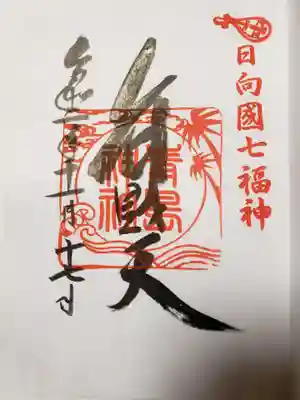 日向國七福神
弁財天
青島
神社
令和
十一月十七日